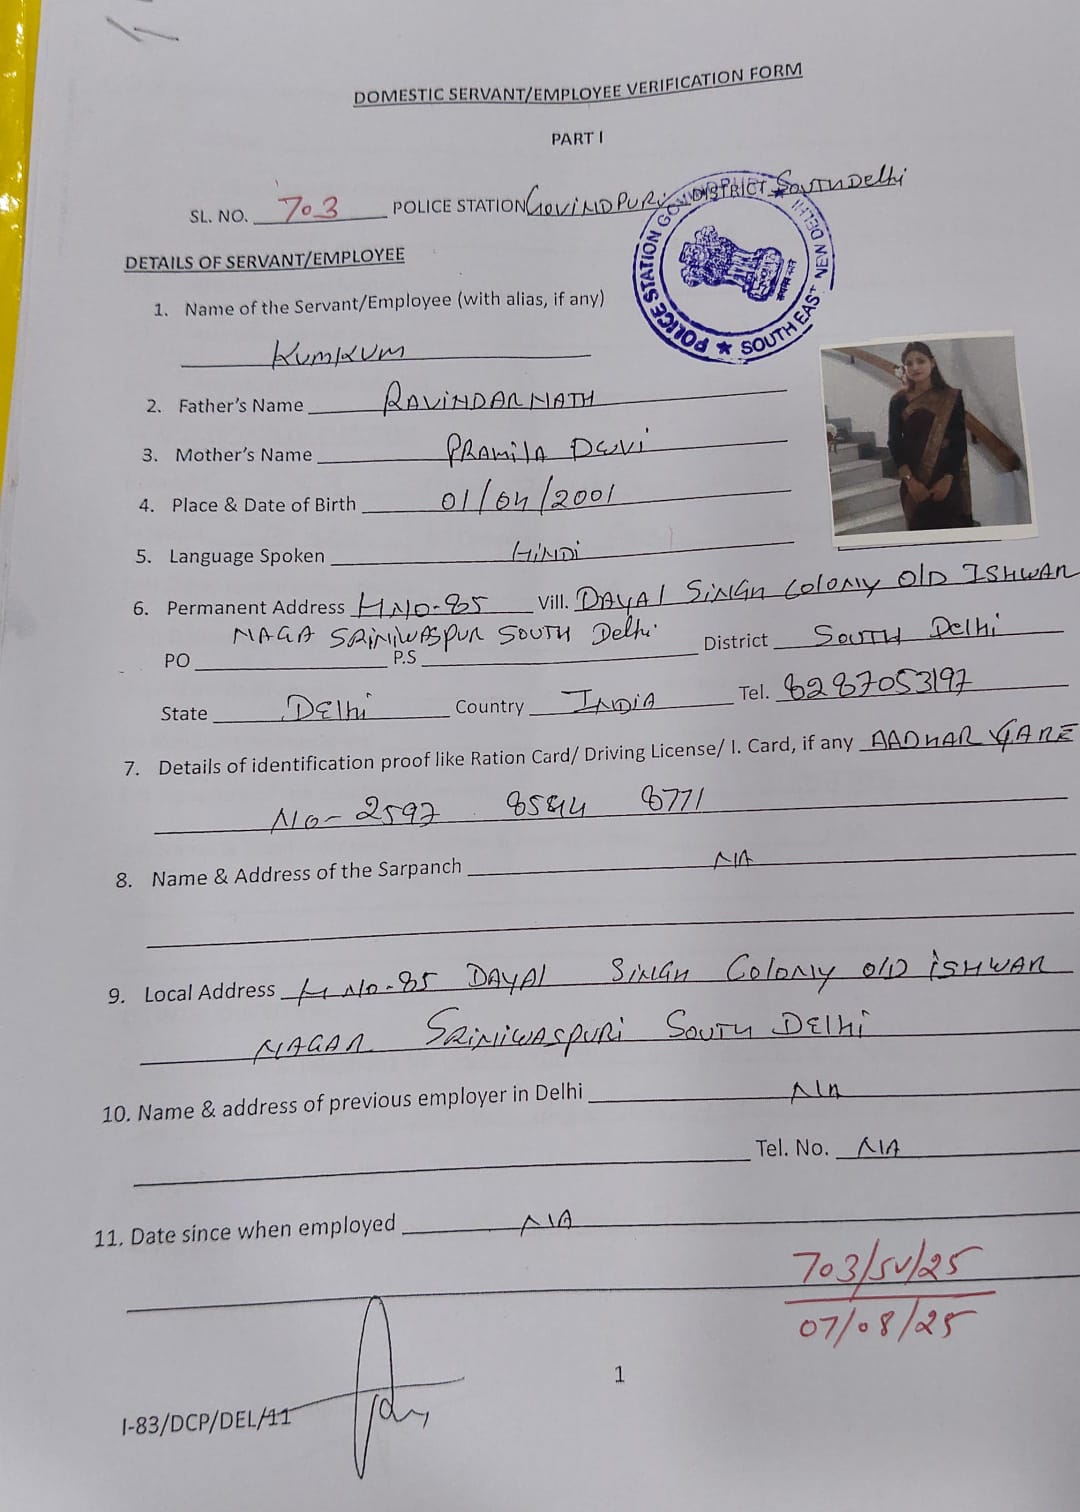 DOMESTIC SERVANT/EMPLOYEE VERIFICATION FORM
PART I
SL. NO. 703 POLICE STATION GOVINDPURI DISTRICT SOUTH Delhi
POLICE STATION SOUTH EAST NEW DELHI
DETAILS OF SERVANT/EMPLOYEE
1. Name of the Servant/Employee (with alias, if any)
KUMKUM
2. Father's Name RAVINDAR NATH
3. Mother's Name PRAMILA DEVI
4. Place & Date of Birth 01/04/2001
5. Language Spoken HINDI
6. Permanent Address H NO-85 Vill. DAYAL SINGH COLONY OLD ISHWAR
NAGA SRINIWASPUR SOUTH Delhi
PO P.S District SOUTH Delhi
State DElhi Country INDIA Tel. 8287053197
7. Details of identification proof like Ration Card/ Driving License/ I. Card, if any AADHAR CARE
NO- 2597 8544 8771
8. Name & Address of the Sarpanch NIA
9. Local Address H NO-85 DAYAL SINGH COLONY OLD ISHWAR
NAGAR SRINIWASPURI SOUTH DElhi
10. Name & address of previous employer in Delhi NIA
Tel. No. NIA
11. Date since when employed NIA
703/SV/25
07/08/25
1
I-83/DCP/DEL/11